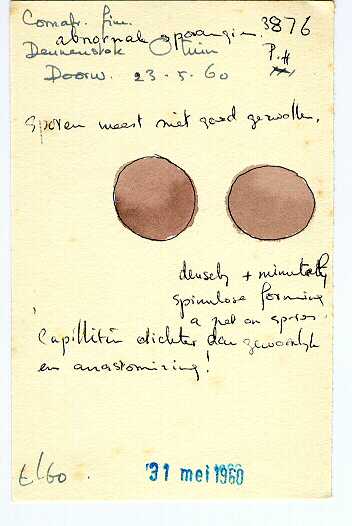 Comatr. fim. 3876
abnormale sporangiën.
Dennenstok tuin P.H
Doorw. 23.5.60
Sporen meest niet goed gezwollen.
densely + minutely
spinulose forming
a net on spores.
Capillitiu dichter dan gewoonlijk
en anastomizing!
E/60
31 mei 1960